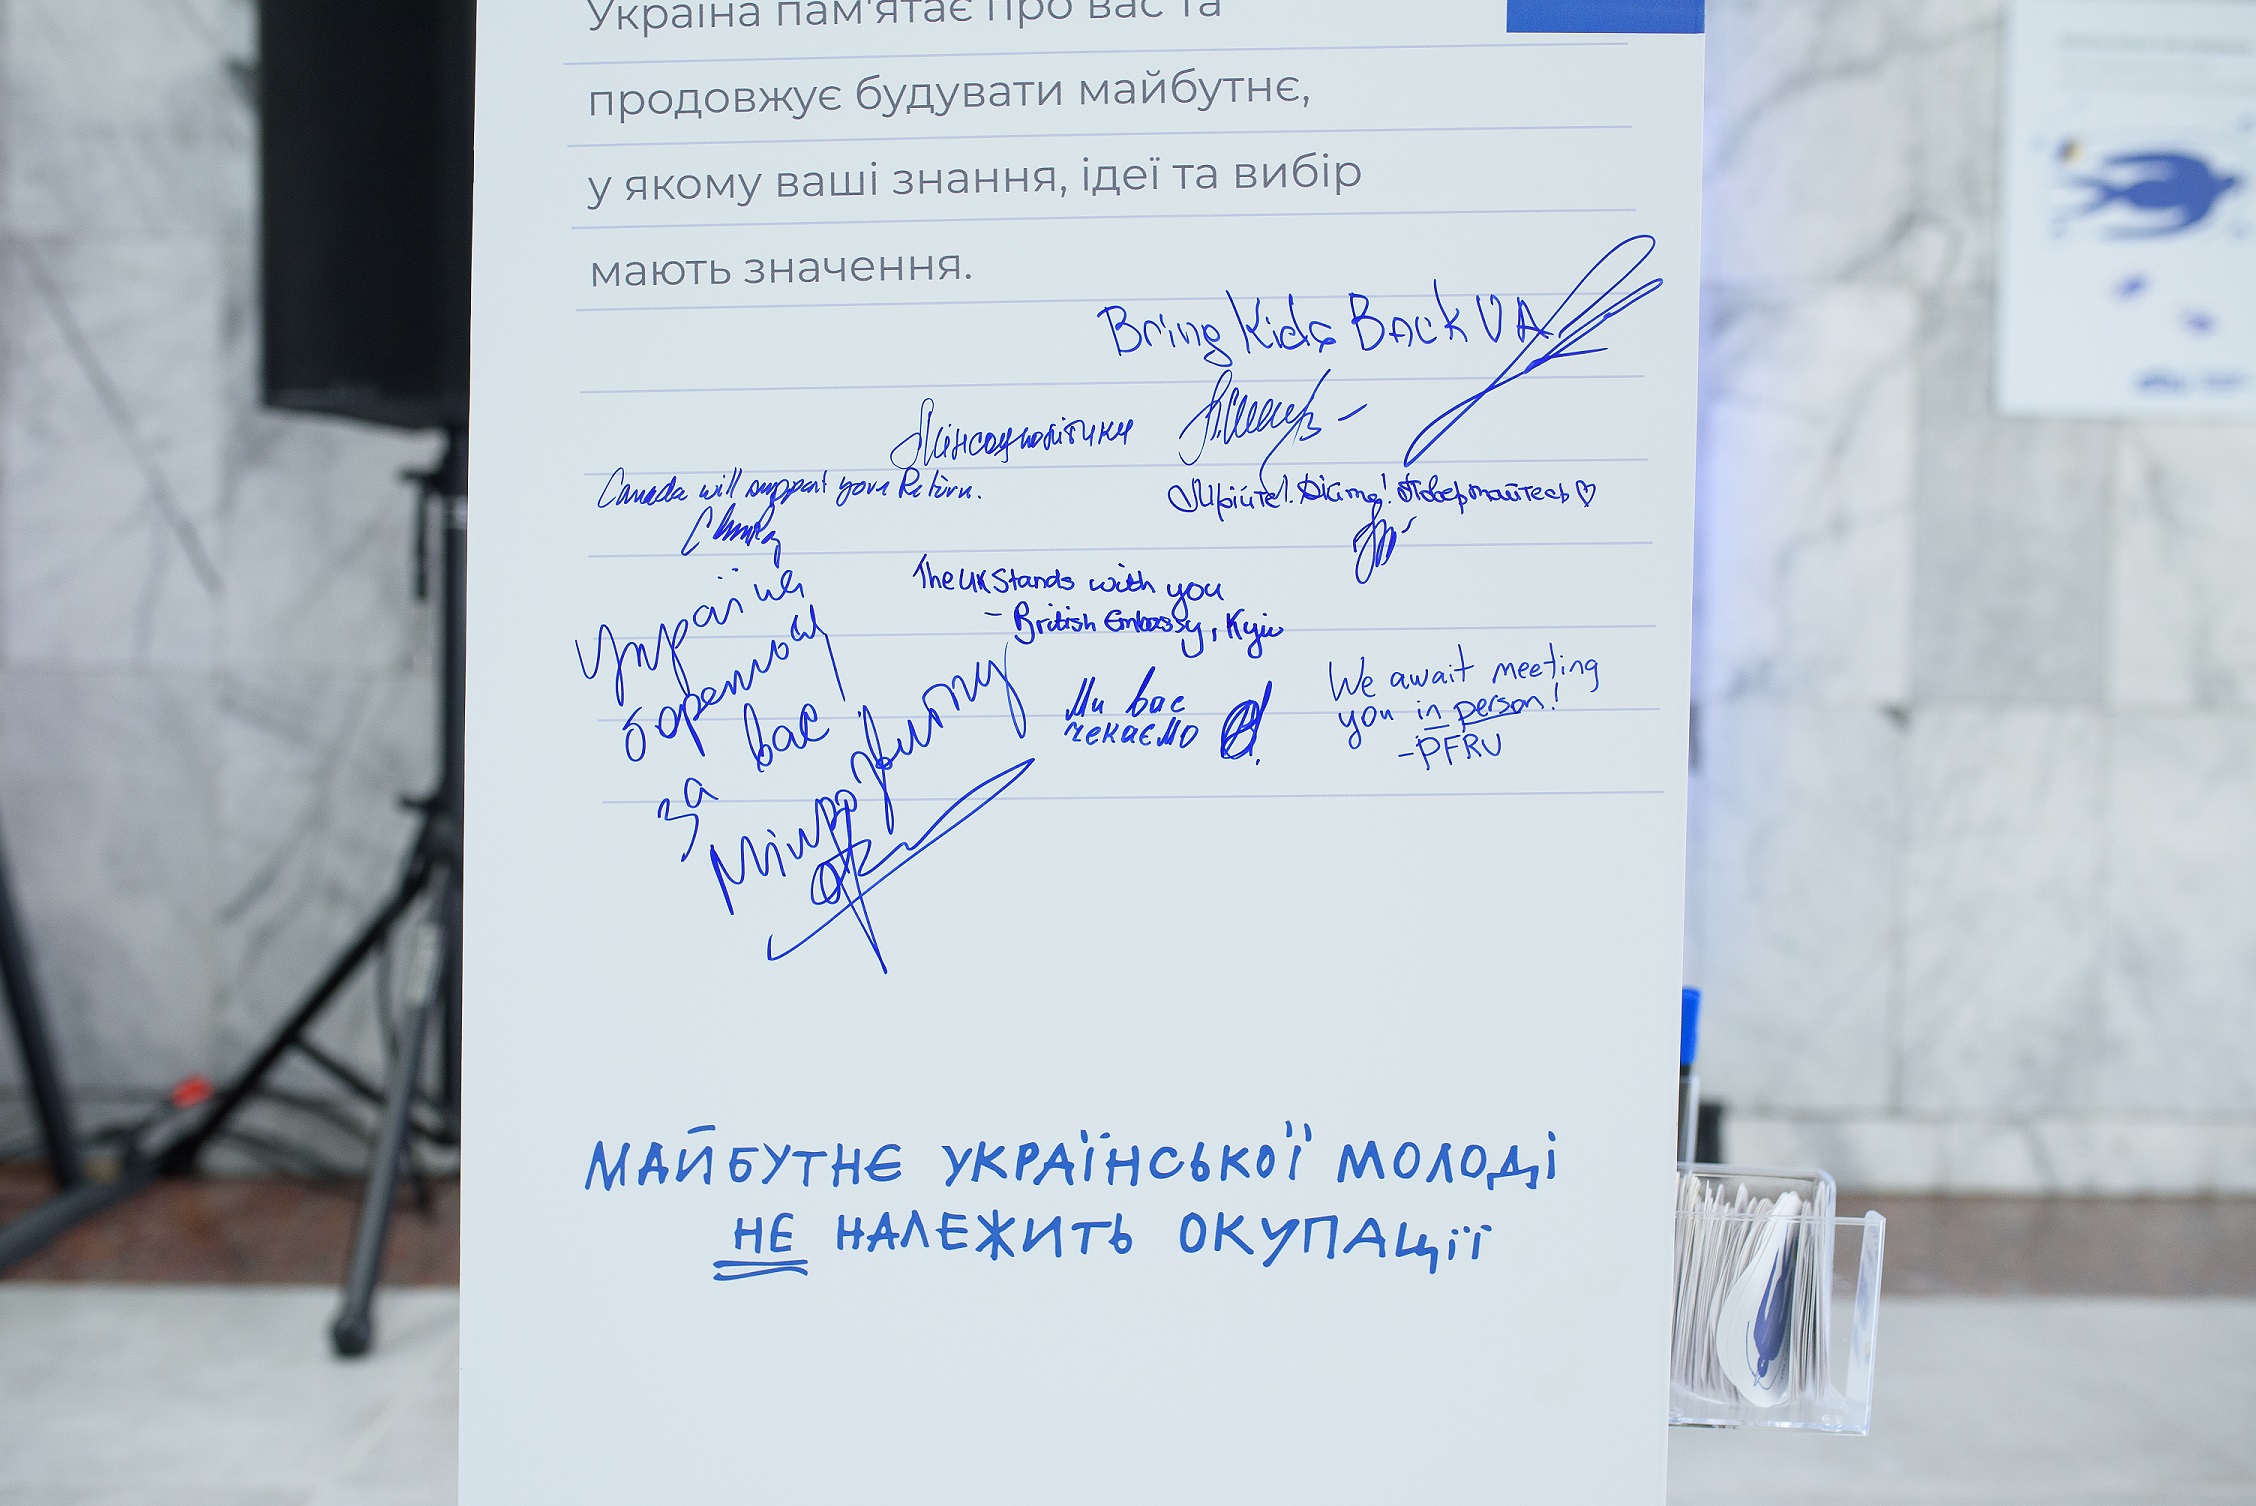 Україна пам'ятає про вас та
продовжує будувати майбутнє,
у якому ваші знання, ідеї та вибір
мають значення.
Bring Kids Back UA
Мінсоцполітики
Canada will support your Return.
Мрійте! Дійте! Повертайтесь ♡
The UK Stands with you
- British Embassy, Kyiv
Україна
бореться
за вас
Мінрозвитку
Ми вас
чекаємо
We await meeting
you in person!
- PFRU
МАЙБУТНЄ УКРАЇНСЬКОЇ МОЛОДІ
НЕ НАЛЕЖИТЬ ОКУПАЦІЇ